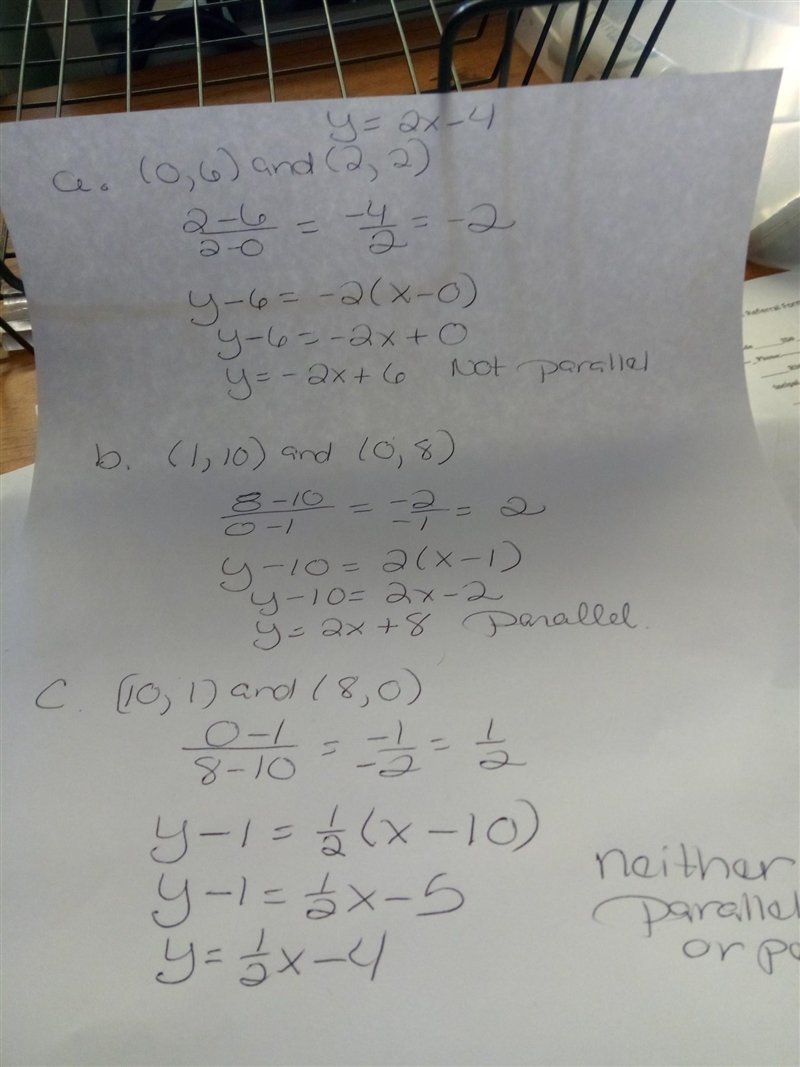 y = 2x-4
a. (0,6) and (2, 2)
2-6/2-0 = -4/2 = -2
y-6 = -2(x-0)
y-6 = -2x + 0
y = -2x + 6 Not parallel
Referral Form
b. (1,10) and (0,8)
8-10/0-1 = -2/-1 = 2
y-10 = 2(x-1)
y-10 = 2x-2
y = 2x + 8 parallel.
C. (10,1) and (8,0)
0-1/8-10 = -1/-2 = 1/2
y-1 = 1/2(x-10)
y-1 = 1/2x-5
y = 1/2x-4
neither
parallel
or